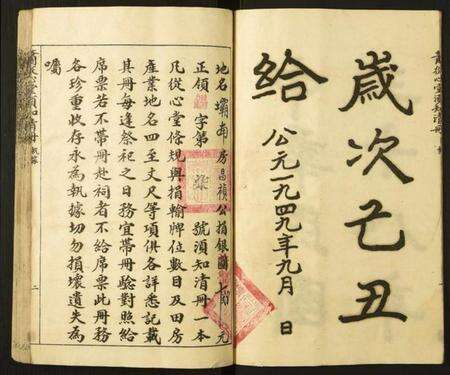 歲次己丑
給
公元一九四九年九月 日
地名壩南房昌禎公捐銀 七 元
正領 字第 號須知清冊一本
凡從心堂條規與捐輸牌位數目及田房
產業地名四至丈尺等項俱各詳悉記載
其冊每逢祭祀之日務宜帶冊驗對照給
席票若不帶冊赴祠者不給席票此冊務
各珍重收存永為執據切勿損壞遺失為
囑
二